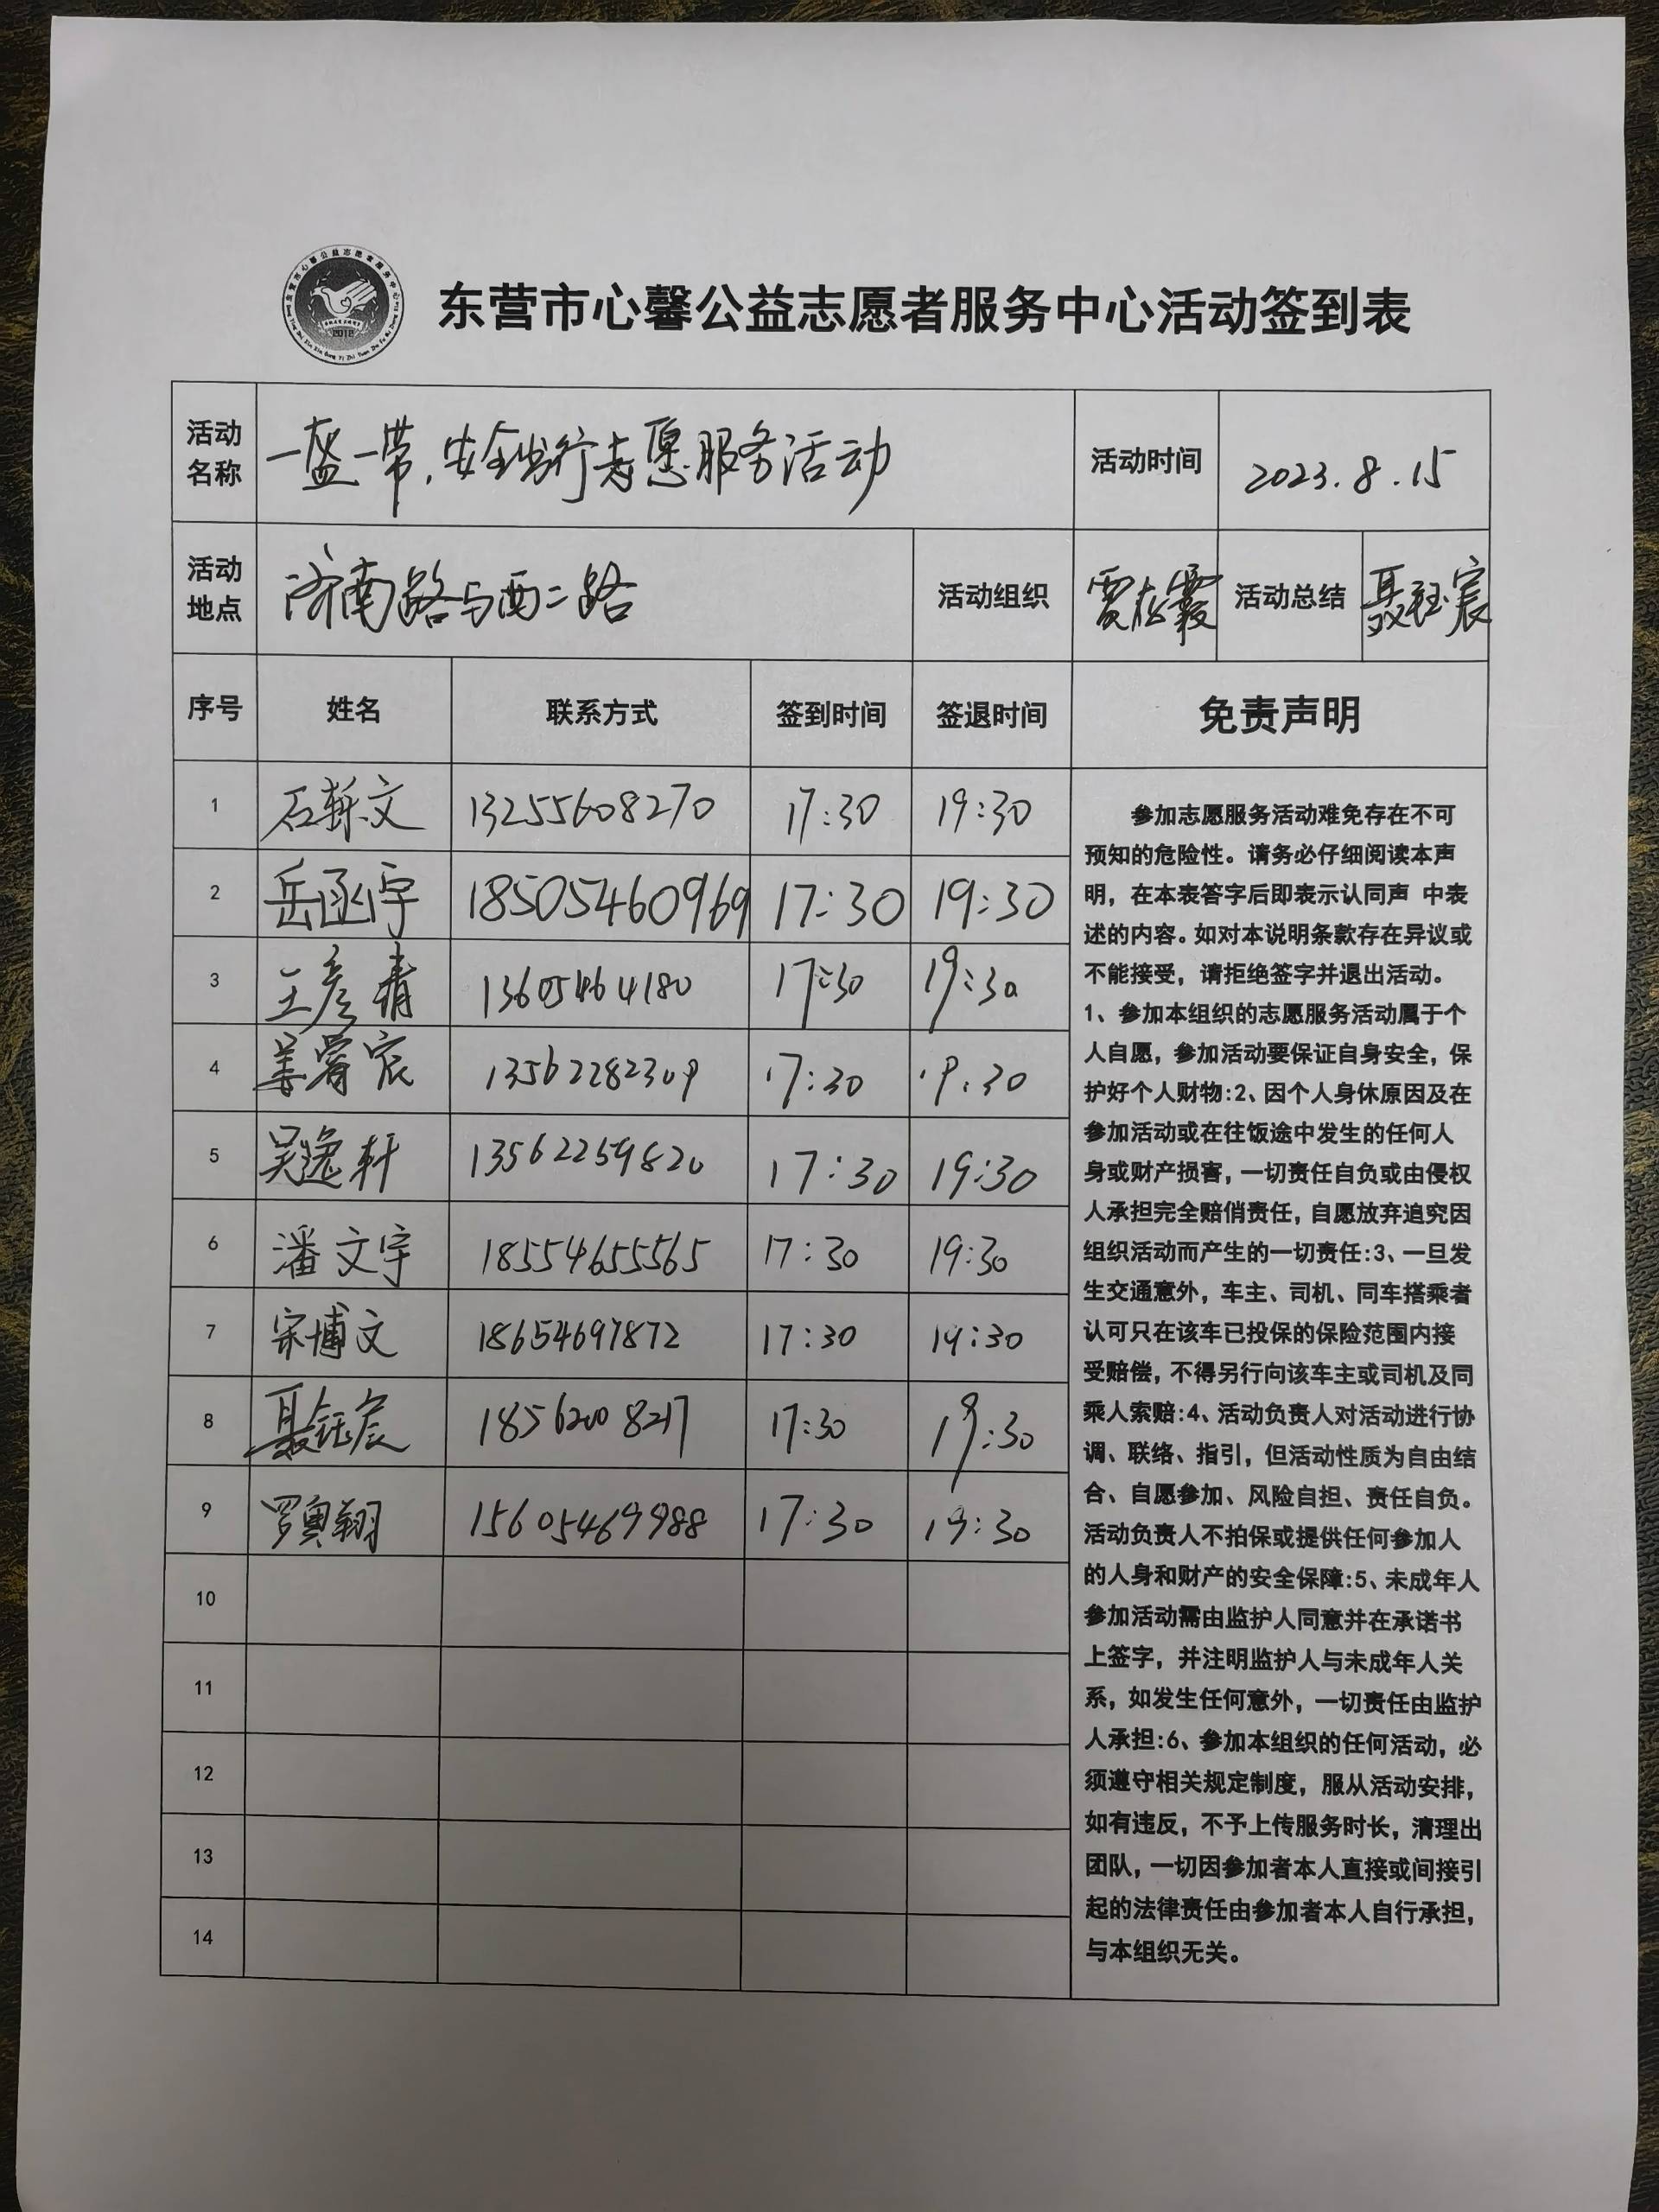 东营市心馨公益志愿者服务中心
2018
东营市心馨公益志愿者服务中心活动签到表
活动名称 一盔一带,安全出行志愿服务活动 活动时间 2023.8.15
活动地点 济南路与西二路 活动组织 贾在霞 活动总结 聂钰宸
序号 姓名 联系方式 签到时间 签退时间 免责声明
1 石轹文 13255608270 17:30 19:30
2 岳函宇 18505460969 17:30 19:30
3 王彦清 13605464180 17:30 19:30
4 姜睿宸 13562282309 17:30 19:30
5 吴逸轩 13562259820 17:30 19:30
6 潘文宇 18554655565 17:30 19:30
7 宋博文 18654697872 17:30 19:30
8 聂钰宸 18562008217 17:30 19:30
9 罗奥翔 15605469988 17:30 19:30
10
11
12
13
14
参加志愿服务活动难免存在不可
预知的危险性。请务必仔细阅读本声
明，在本表答字后即表示认同声 中表
述的内容。如对本说明条款存在异议或
不能接受，请拒绝签字并退出活动。
1、参加本组织的志愿服务活动属于个
人自愿，参加活动要保证自身安全，保
护好个人财物:2、因个人身休原因及在
参加活动或在往饭途中发生的任何人
身或财产损害，一切责任自负或由侵权
人承担完全赔俏责任，自愿放弃追究因
组织活动而产生的一切责任:3、一旦发
生交通意外，车主、司机、同车搭乘者
认可只在该车已投保的保险范围内接
受赔偿，不得另行向该车主或司机及同
乘人索赔:4、活动负责人对活动进行协
调、联络、指引，但活动性质为自由结
合、自愿参加、风险自担、责任自负。
活动负责人不拍保或提供任何参加人
的人身和财产的安全保障:5、未成年人
参加活动需由监护人同意并在承诺书
上签字，并注明监护人与未成年人关
系，如发生任何意外，一切责任由监护
人承担:6、参加本组织的任何活动，必
须遵守相关规定制度，服从活动安排，
如有违反，不予上传服务时长，清理出
团队，一切因参加者本人直接或间接引
起的法律责任由参加者本人自行承担，
与本组织无关。